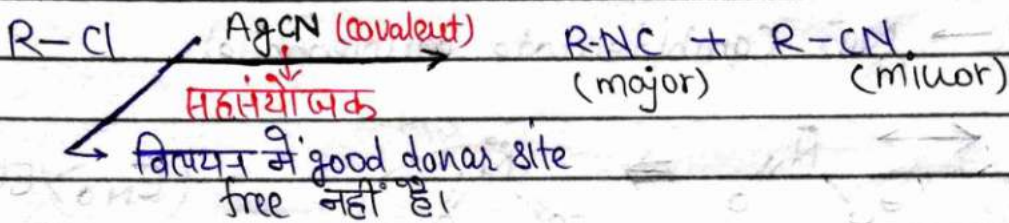 R-Cl AgCN (covalent) R-NC + R-CN
(major) (minor)
सहसंयोजक
विलयन में good donar site
free नहीं है।